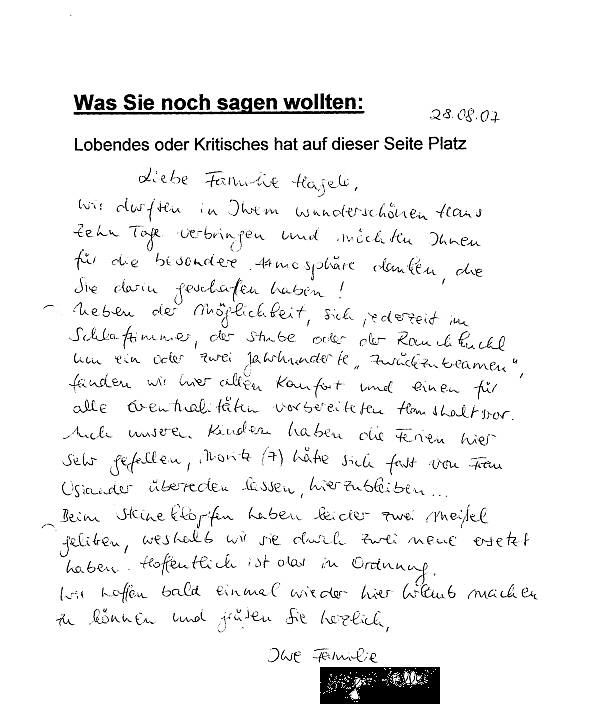 Was Sie noch sagen wollten:
28.08.07
Lobendes oder Kritisches hat auf dieser Seite Platz
Liebe Familie Hagele,
wir durften in Ihrem wunderschönen Haus
zehn Tage verbringen und möchten Ihnen
für die besondere Atmosphäre danken, die
Sie darin geschafen haben!
Neben der Möglichkeit, sich jederzeit im
Schlafzimmer, der Stube oder der Rauchkuchl
um ein oder zwei Jahrhunderte „zurückzubeamen“,
fanden wir hier allen Komfort und einen für
alle Eventualitäten vorbereiteten Haushalt vor.
Auch unseren Kindern haben die Ferien hier
sehr gefallen, Moritz (7) hätte sich fast von Frau
Osiander überreden lassen, hierzubleiben...
Beim Steineklopfen haben leider zwei Meißel
gelitten, weshalb wir sie durch zwei neue ersetzt
haben. Hoffentlich ist das in Ordnung.
Wir hoffen bald einmal wieder hier Urlaub machen
zu können und grüßen Sie herzlich,
Ihre Familie